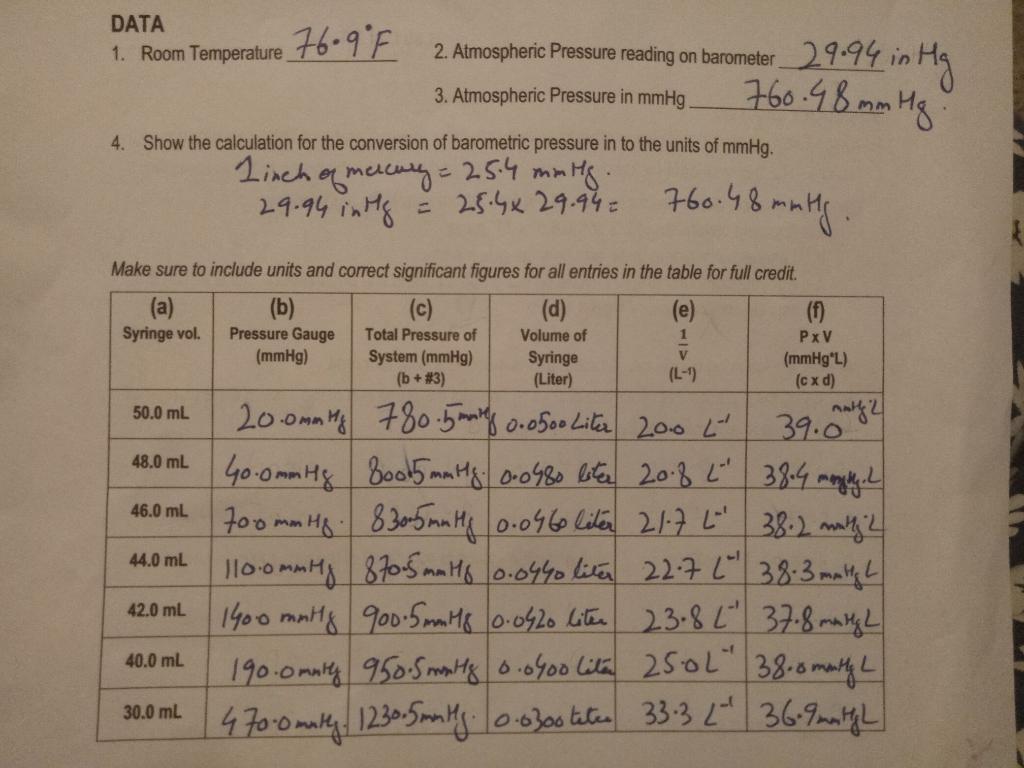 DATA
1. Room Temperature 76.9°F
2. Atmospheric Pressure reading on barometer 29.94 in Hg
3. Atmospheric Pressure in mmHg 760.48 mm Hg.
4. Show the calculation for the conversion of barometric pressure in to the units of mmHg.
1 inch of mercury = 25.4 mm Hg.
29.94 in Hg = 25.4x 29.94 = 760.48 mmHg.
Make sure to include units and correct significant figures for all entries in the table for full credit.
(a) (b) (c) (d) (e) (f)
Syringe vol. Pressure Gauge Total Pressure of Volume of 1/V P x V
(mmHg) System (mmHg) Syringe (L-1) (mmHg*L)
(b + #3) (Liter) (c x d)
50.0 mL 20.0mm Hg 780.5mmHg 0.0500 Liter 20.0 L-1 39.0 mmHg L
48.0 mL 40.0mm Hg 800.5 mmHg. 0.0480 liter 20.8 L-1 38.4 mmHg.L
46.0 mL 70.0 mm Hg. 830.5mmHg 0.0460 liter 21.7 L-1 38.2 mmHg.L
44.0 mL 110.0mmHg 870.5 mmHg 0.0440 liter 22.7 L-1 38.3 mmHg L
42.0 mL 140.0 mmHg 900.5mmHg 0.0420 liter 23.8 L-1 37.8 mmHgL
40.0 mL 190.0mmHg 950.5mmHg 0.0400 liter 25.0 L-1 38.0 mmHg L
30.0 mL 470.0mmHg. 1230.5mmHg. 0.0300 liter 33.3 L-1 36.9mmHgL